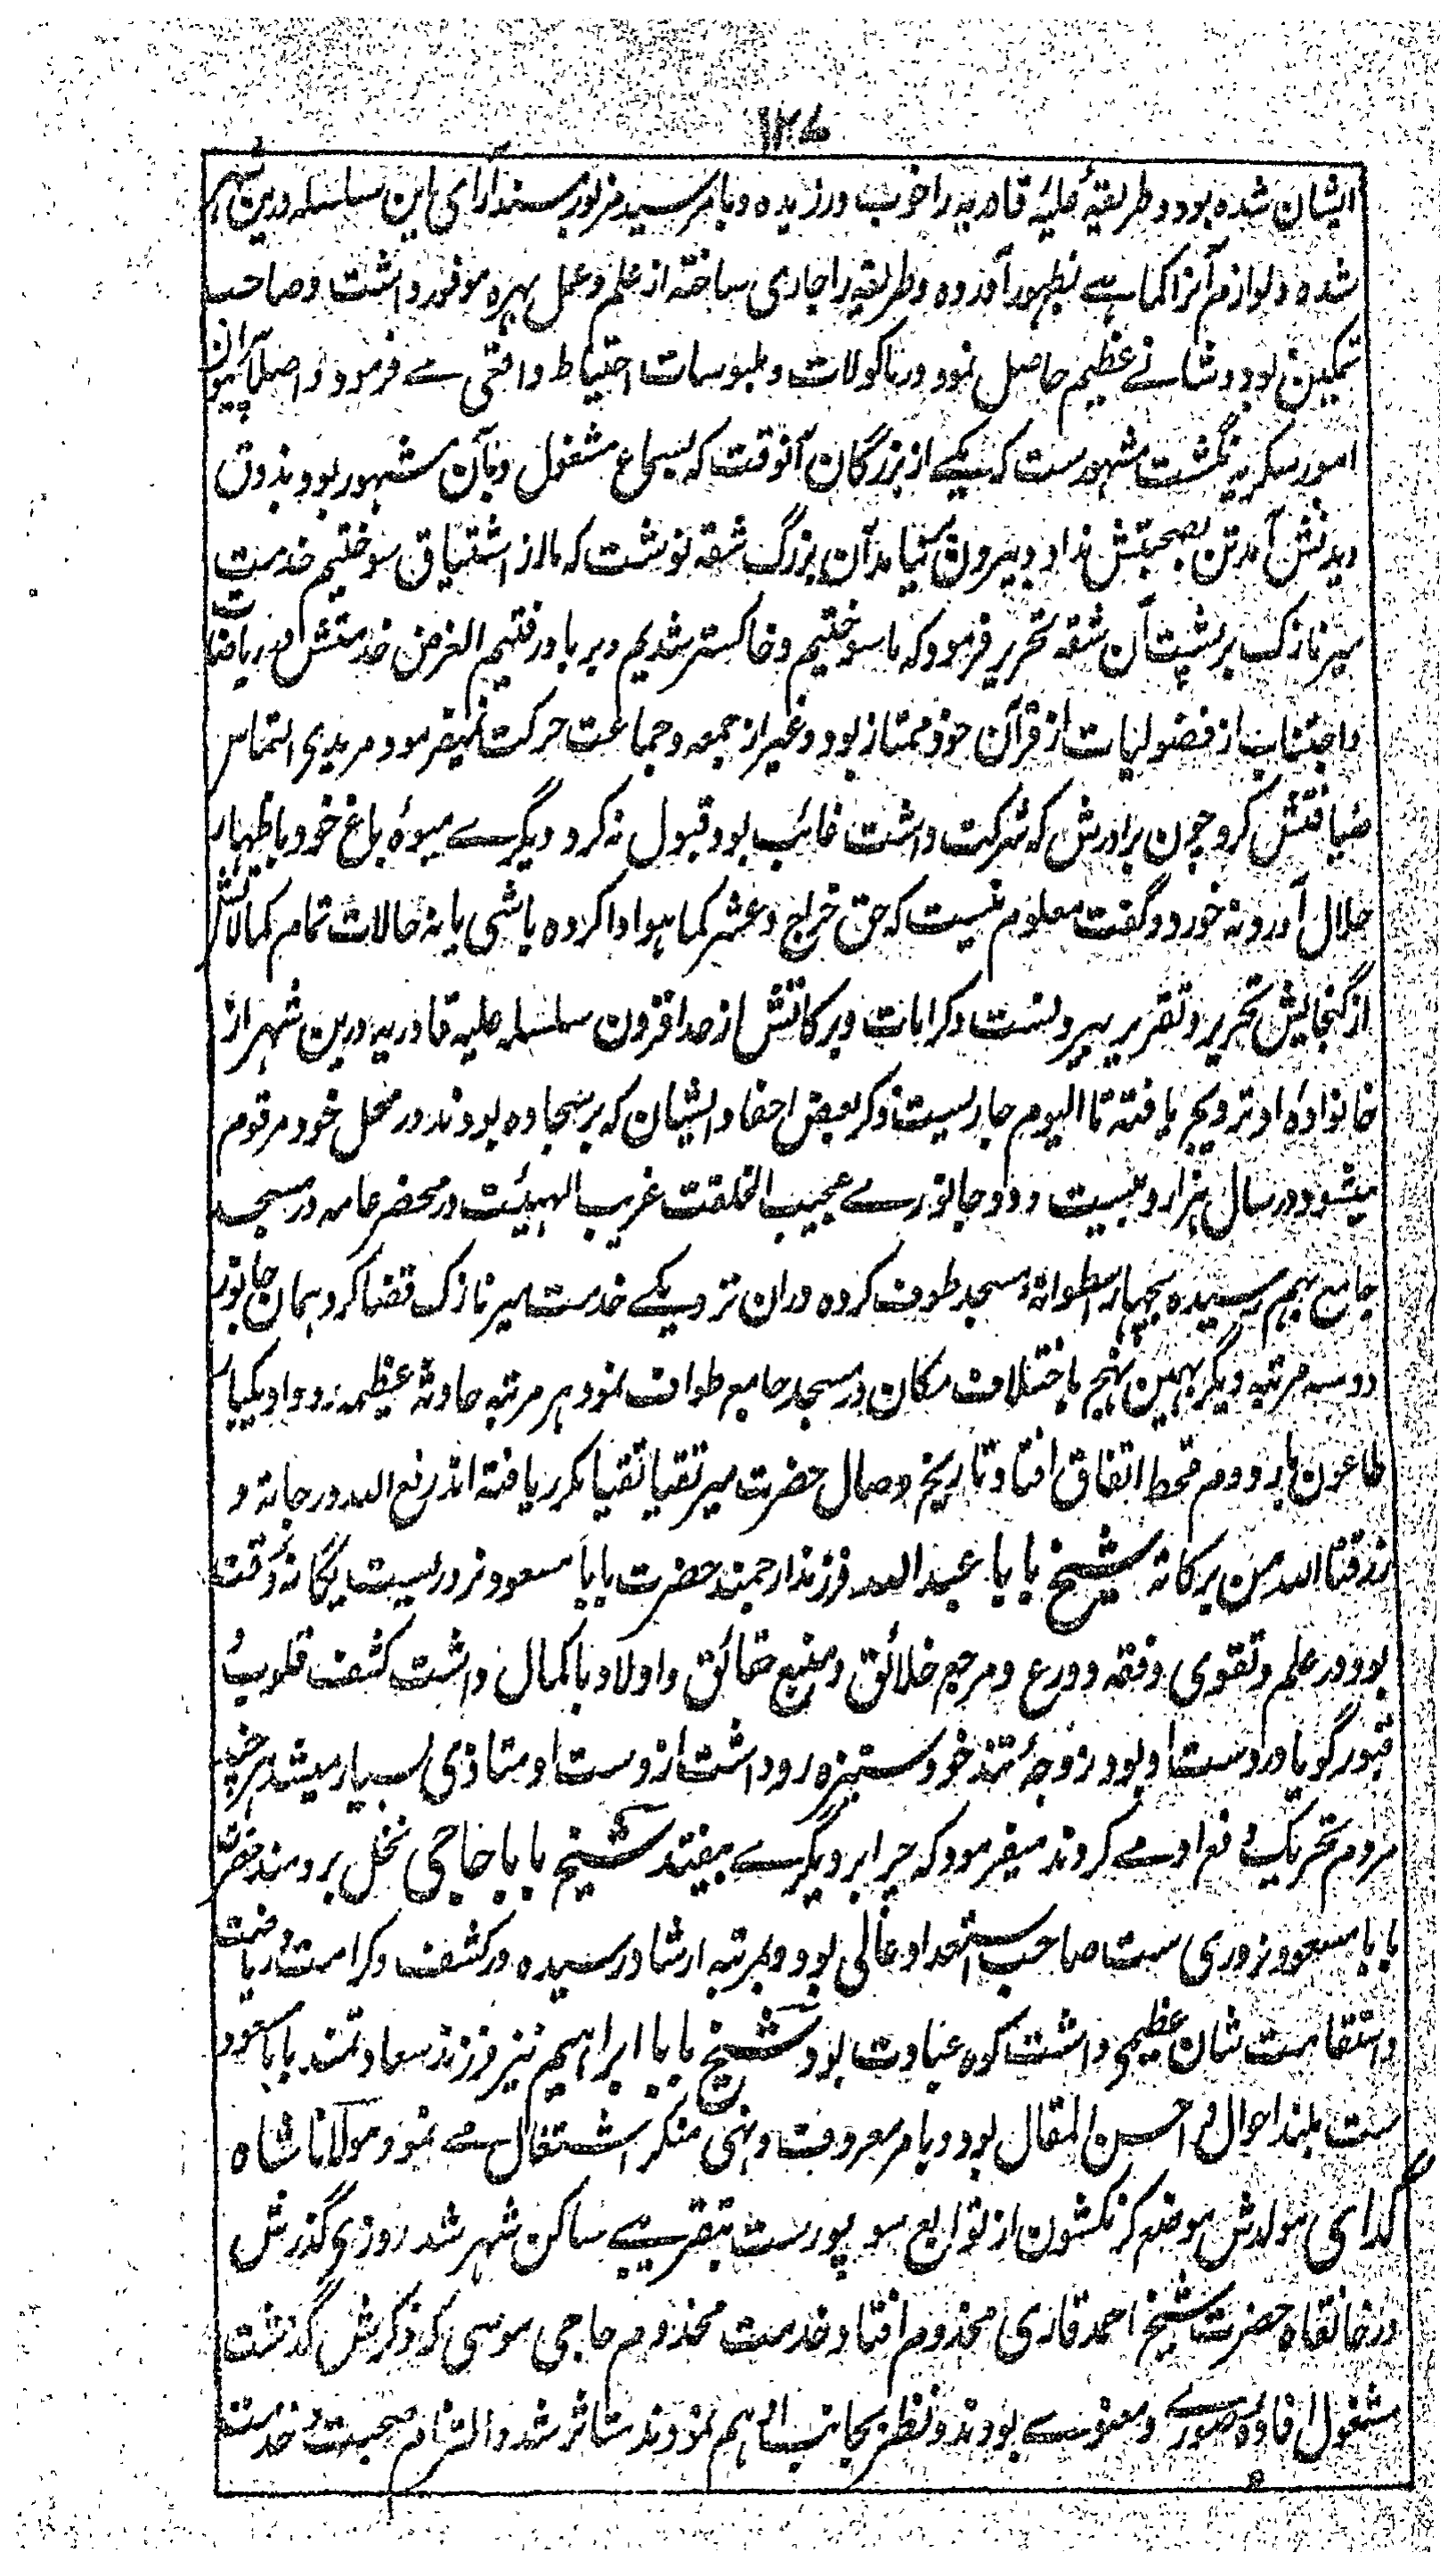 ۱۲۷
ایشان شده بود و طریقهٔ علیهٔ قادریه را خوب ورزیده و بامر سید مزبور مسند آرای این سلسله درین شهر
شده و لوازم آنرا کماہے بظهور آورده و طریقه را جاری ساخته از علم و عمل بهره موفور داشت و صاحب
تمکین بود و شانے عظیم حاصل نمود در ماکولات و ملبوسات احتیاط واقعی مے فرمود و اصلاً پیرامون
امور سکریه نگشت مشهورست که یکے از بزرگان آنوقت که بسماع مشغول و بآن مشهور بود بذوق
دیدنش آمد تن بصحبتش نداد و بیرون نیامد آن بزرگ شقه نوشت که ما از اشتیاق سوختیم خدمت
میر نازک بر پشت آن شقه تحریر فرمود که ما سوختیم و خاکستر شدیم و بر باد رفتیم الغرض خدمتش در ریاضات
و اجتناب از فضولیات از قرآن خود ممتاز بود و غیر از جمعه و جماعت حرکت نمیفرمود مریدی التماس
ضیافتش کرد چون برادرش که شرکت داشت غائب بود قبول نه کرد دیگرے میوهٔ باغ خود باظهار
حلال آورد نه خورد و گفت معلوم نیست که حق خراج و عشر کما هو ادا کرده باشی یا نه حالات تمام کمالاتش
از گنجایش تحریر و تقریر بیرونست و کرامات و برکاتش از حد افزون سلسله علیه قادریه درین شهر از
خانوادهٔ او ترویج یافته تا الیوم جاریست ذکر بعض احفاد ایشان که بر سجاده بودند در محل خود مرقوم
میشود در سال هزار و بیست و دو جانورے عجیب الخلقت غریب الهیئت در محضر عامه در مسجد
جامع بهم رسیده بچهار اسطوانهٔ مسجد طوف کرده در ان نزدیکے خدمت میر نازک قضا کرد همان جانور
دو سه مرتبه دیگر بهمین نهج باختلاف مکان در مسجد جامع طواف نمود هر مرتبه حادثهٔ عظیمه رو داد یکبار
طاعون بار دوم قحط اتفاق افتاد تاریخ وصال حضرت میر تقیا نقیا مکرر یافته اند رفع الله درجاته و
رزقنا الله من برکاته شیخ بابا عبد الله فرزند ارجمند حضرت بابا مسعود نروریست یگانهٔ وقت
بود در علم و تقوی و فقه و ورع و مرجع خلائق و منبع حقائق و اولاد باکمال داشت کشف قلوب و
قبور گویا در دست او بود زوجهٔ تند خو و ستیزه رو داشت از دست او متاذی بسیار میشد هر چند
مردم تحریک دفع او مے کردند میفرمود که چرا بر دیگرے بیفتد شیخ بابا حاجی نخل برومند حضرت
بابا مسعود نروری ست صاحب استعداد عالی بود و بمرتبه ارشاد رسیده در کشف و کرامت و ریاضت
و استقامت شان عظیمی داشت کوه عبادت بود شیخ بابا ابراهیم نیز فرزند سعادتمند بابا مسعود
ست بلند احوال و احسن المقال بود و بامر معروف و نهی منکر اشتغال مے نمود مولانا شاه
گدای مولدش موضع کرنکشون از توابع سوپورست بتقریبے ساکن شهر شد روزی گذرش
در خانقاه حضرت شیخ احمد قاری مخدوم افتاد خدمت مخدوم حاجی موسی که ذکرش گذشت
مشغول افادهٔ صورے و معنوے بودند و نظر بجانب او هم نمودند متاثر شد و التزام صحبت و خدمت